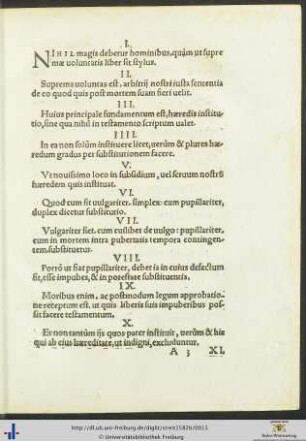 I.
NIHIL magis debetur hominibus, quàm ut supre
mæ voluntatis liber sit stylus.
II.
Suprema voluntas est, arbitrij nostri iusta sententia
de eo quod quis post mortem suam fieri uelit.
III.
Huius principale fundamentum est, hæredis institu-
tio, sine qua nihil in testamento scriptum ualet.
IIII.
In ea non solùm instituere licet, uerùm & plures hæ-
redum gradus per substitutionem facere.
V.
Vt nouissimo loco in subsidium, uel seruum nostrũ
hæredem quis instituat.
VI.
Quod cum fit uulgariter, simplex: cum pupillariter,
duplex dicetur substitutio.
VII.
Vulgariter fiet, cum cuilibet de uulgo: pupillariter,
cum in mortem intra pubertatis tempora contingen-
tem, substituetur.
VIII.
Porrò ut fiat pupillariter, debet is in cuius defectum
fit, esse impubes, & in potestate substituentis.
IX.
Moribus enim, ac postmodum legum approbatio-
ne receptum est, ut quis liberis suis impuberibus pos-
sit facere testamentum.
X.
Et non tantùm ijs quos pater instituit, uerùm & his
qui ab eius hæreditate, ut indigni, excluduntur.
A 3 XI.
http://dl.ub.uni-freiburg.de/diglit/streit1582b/0015
© Universitätsbibliothek Freiburg